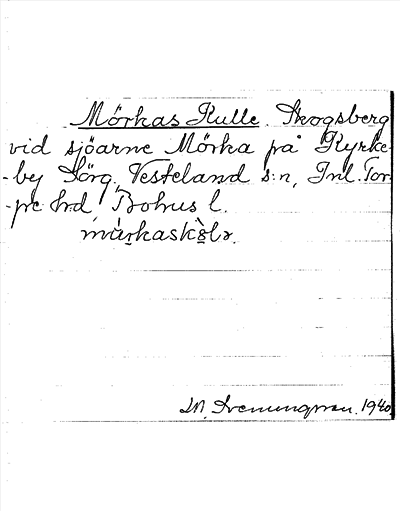 Mörkas Kulle. Skogsberg
vid sjöarne Mörka på Kyrke-
-by Sörg. Vesteland s:n, Inl. Tor-
-pe hrd, Bohus l.
márkaskòlə.
1940